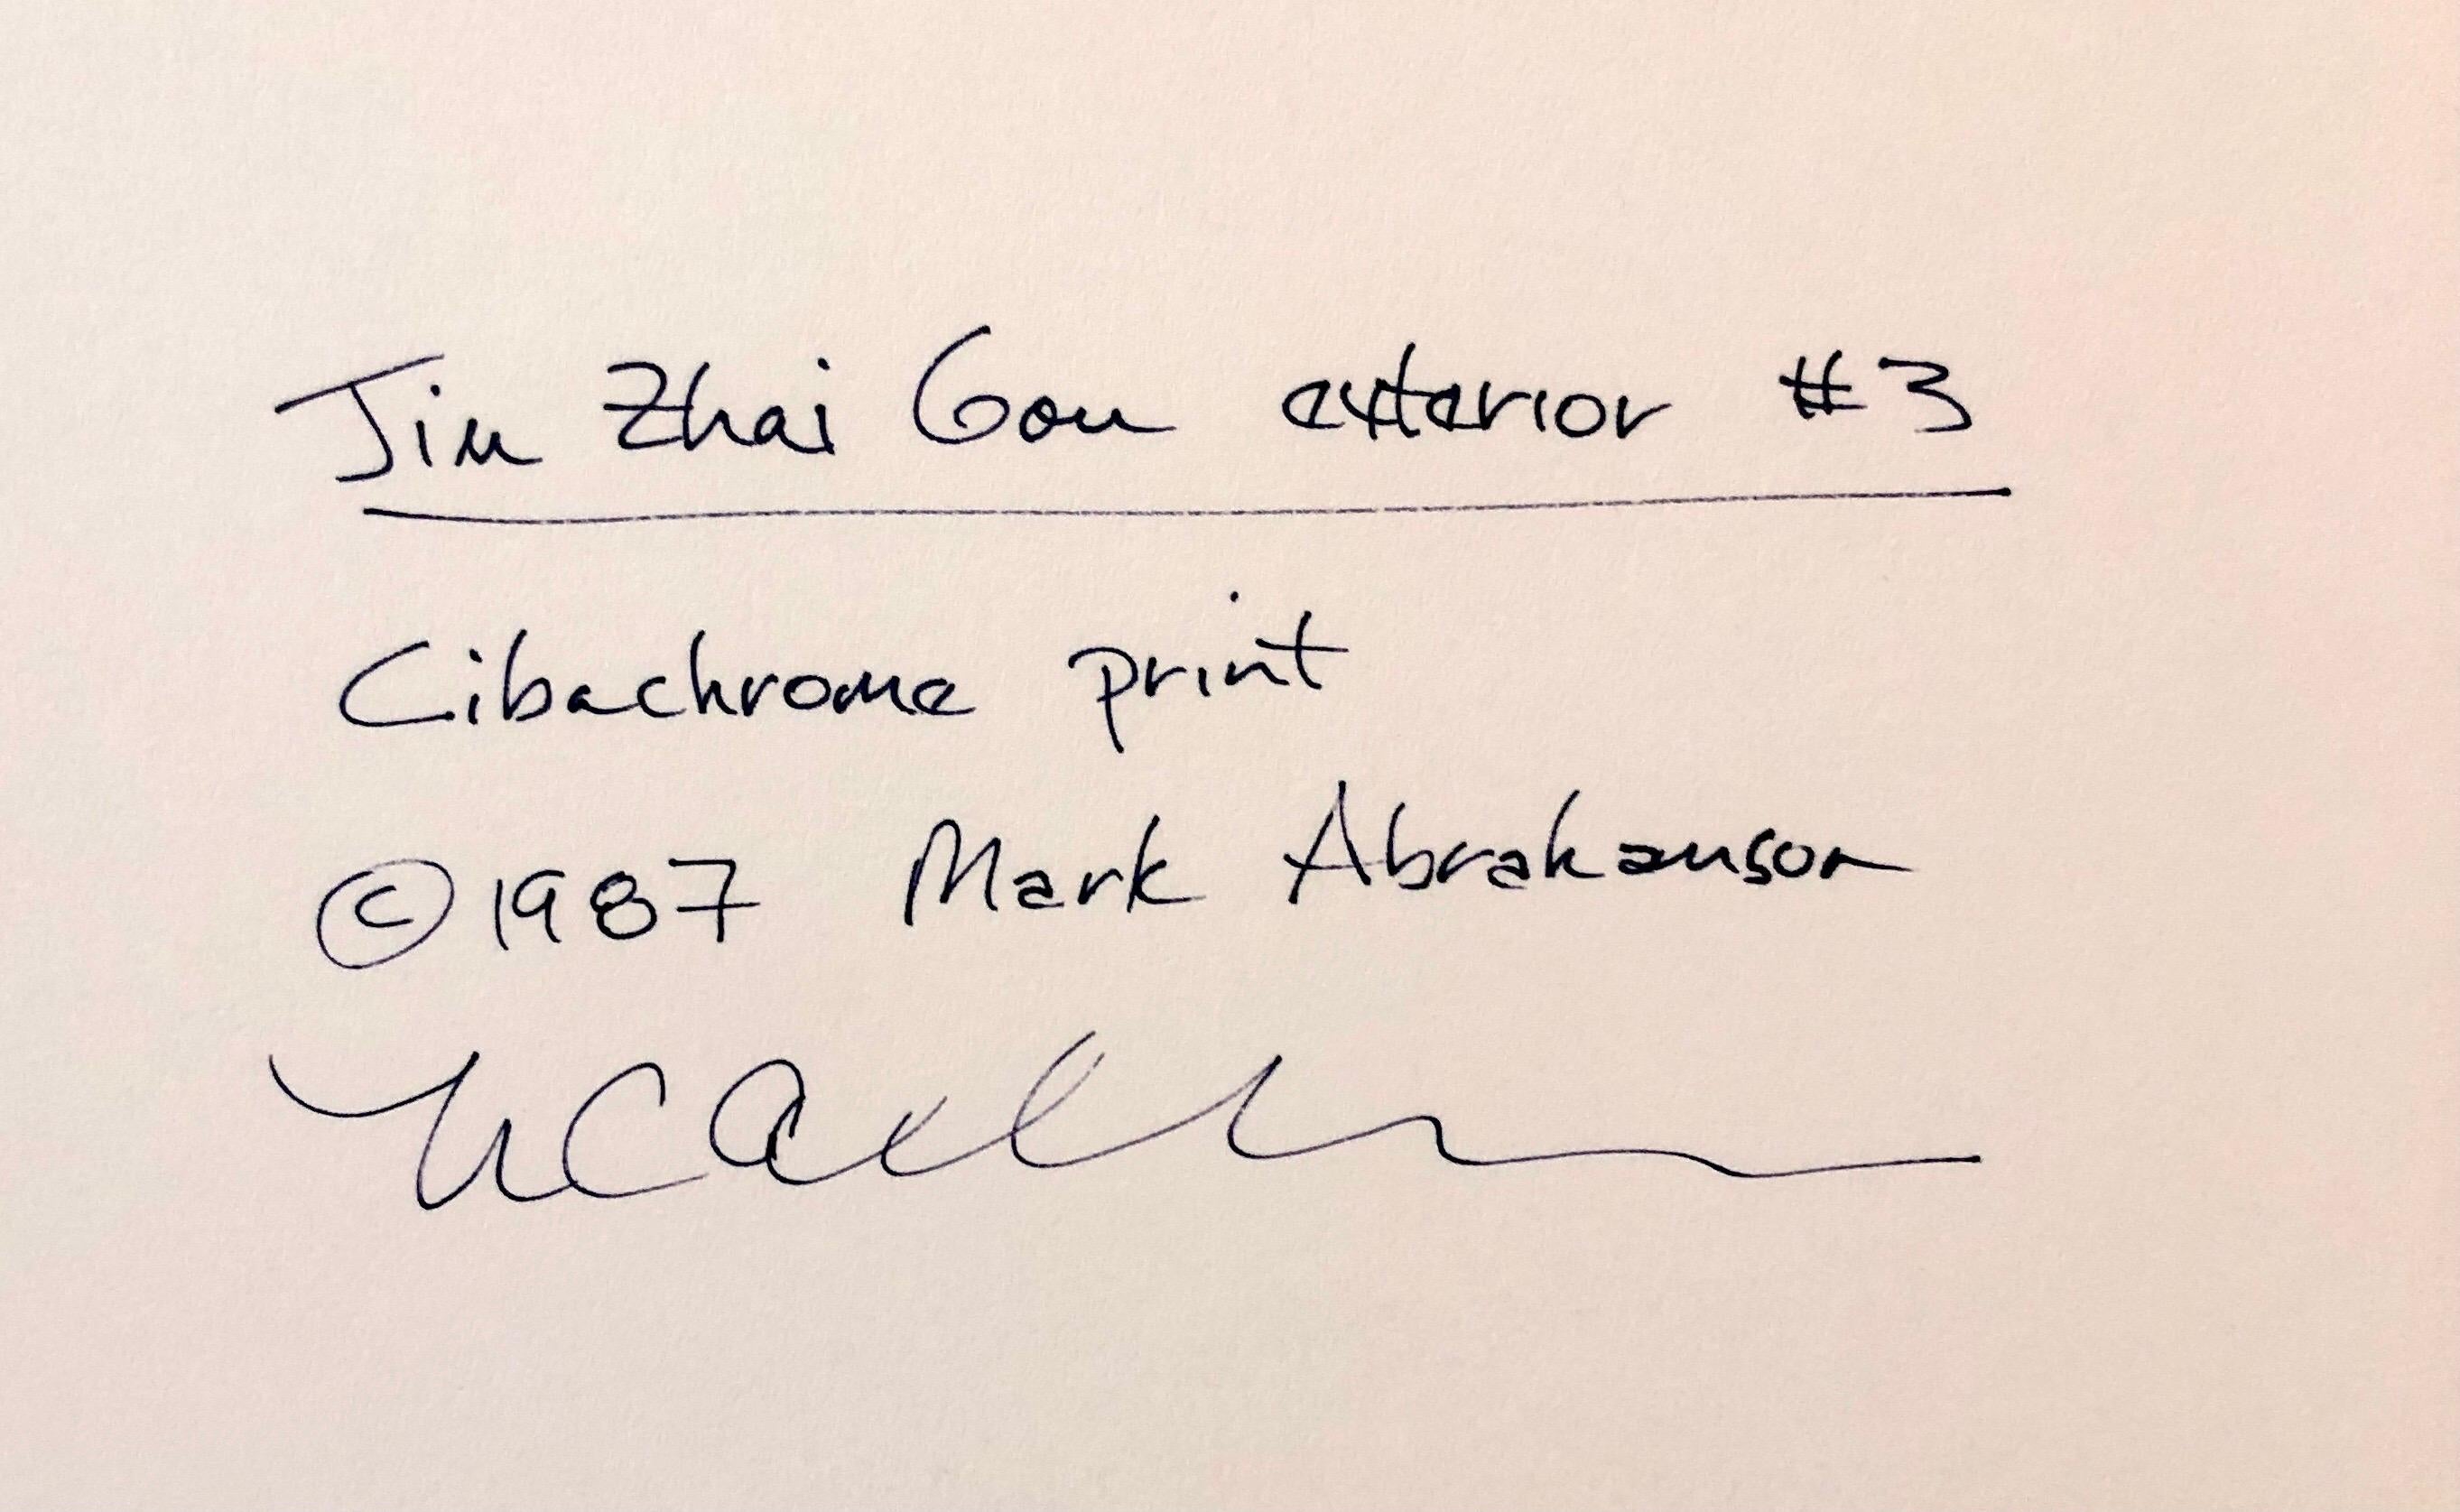 Jiu Zhai Gou exterior #3
Cibachrome print
©1987 Mark Abrahamson